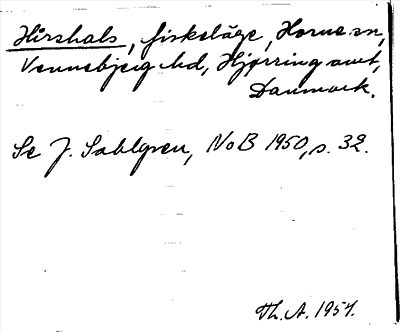 Hirshals, fiskeläge, Horne sn,
Vennebjerg hd, Hjørring amt,
Danmark.
Se J. Sahlgren, NoB 1950, s. 32.
Th. A. 1951.